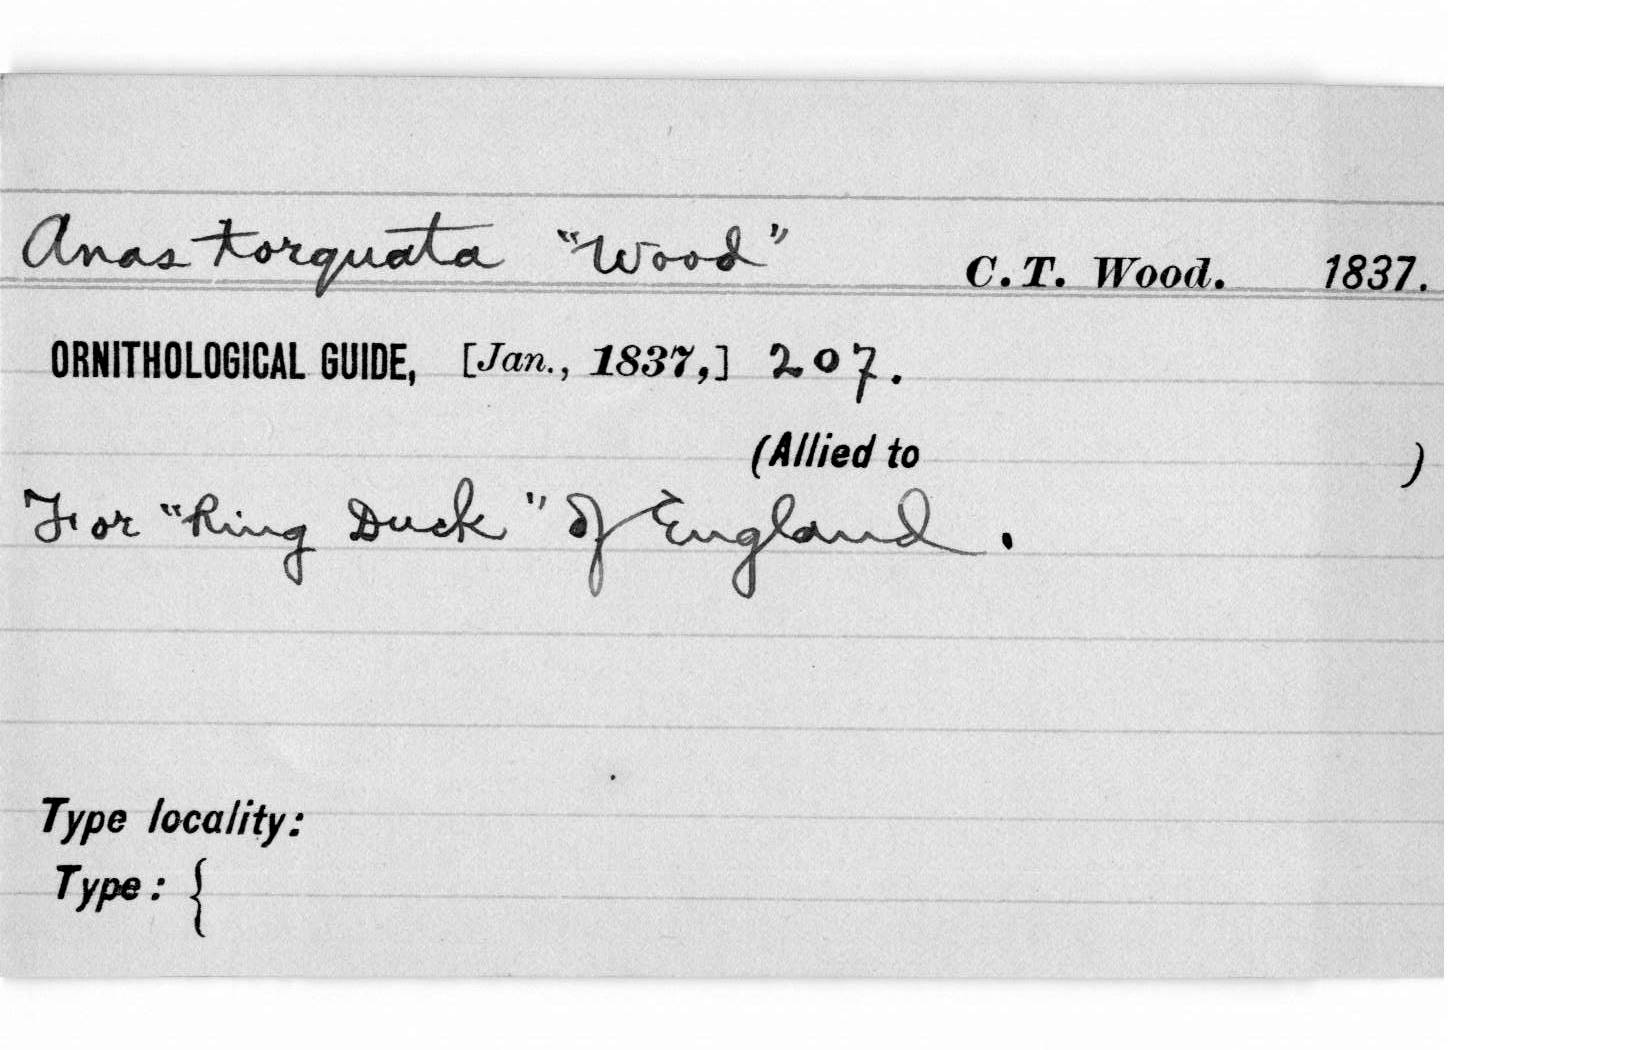 Anas torquata "Wood" C.T. Wood. 1837.
ORNITHOLOGICAL GUIDE, [Jan., 1837,] 207.
(Allied to )
For "Ring Duck" of England.
Type locality:
Type: {